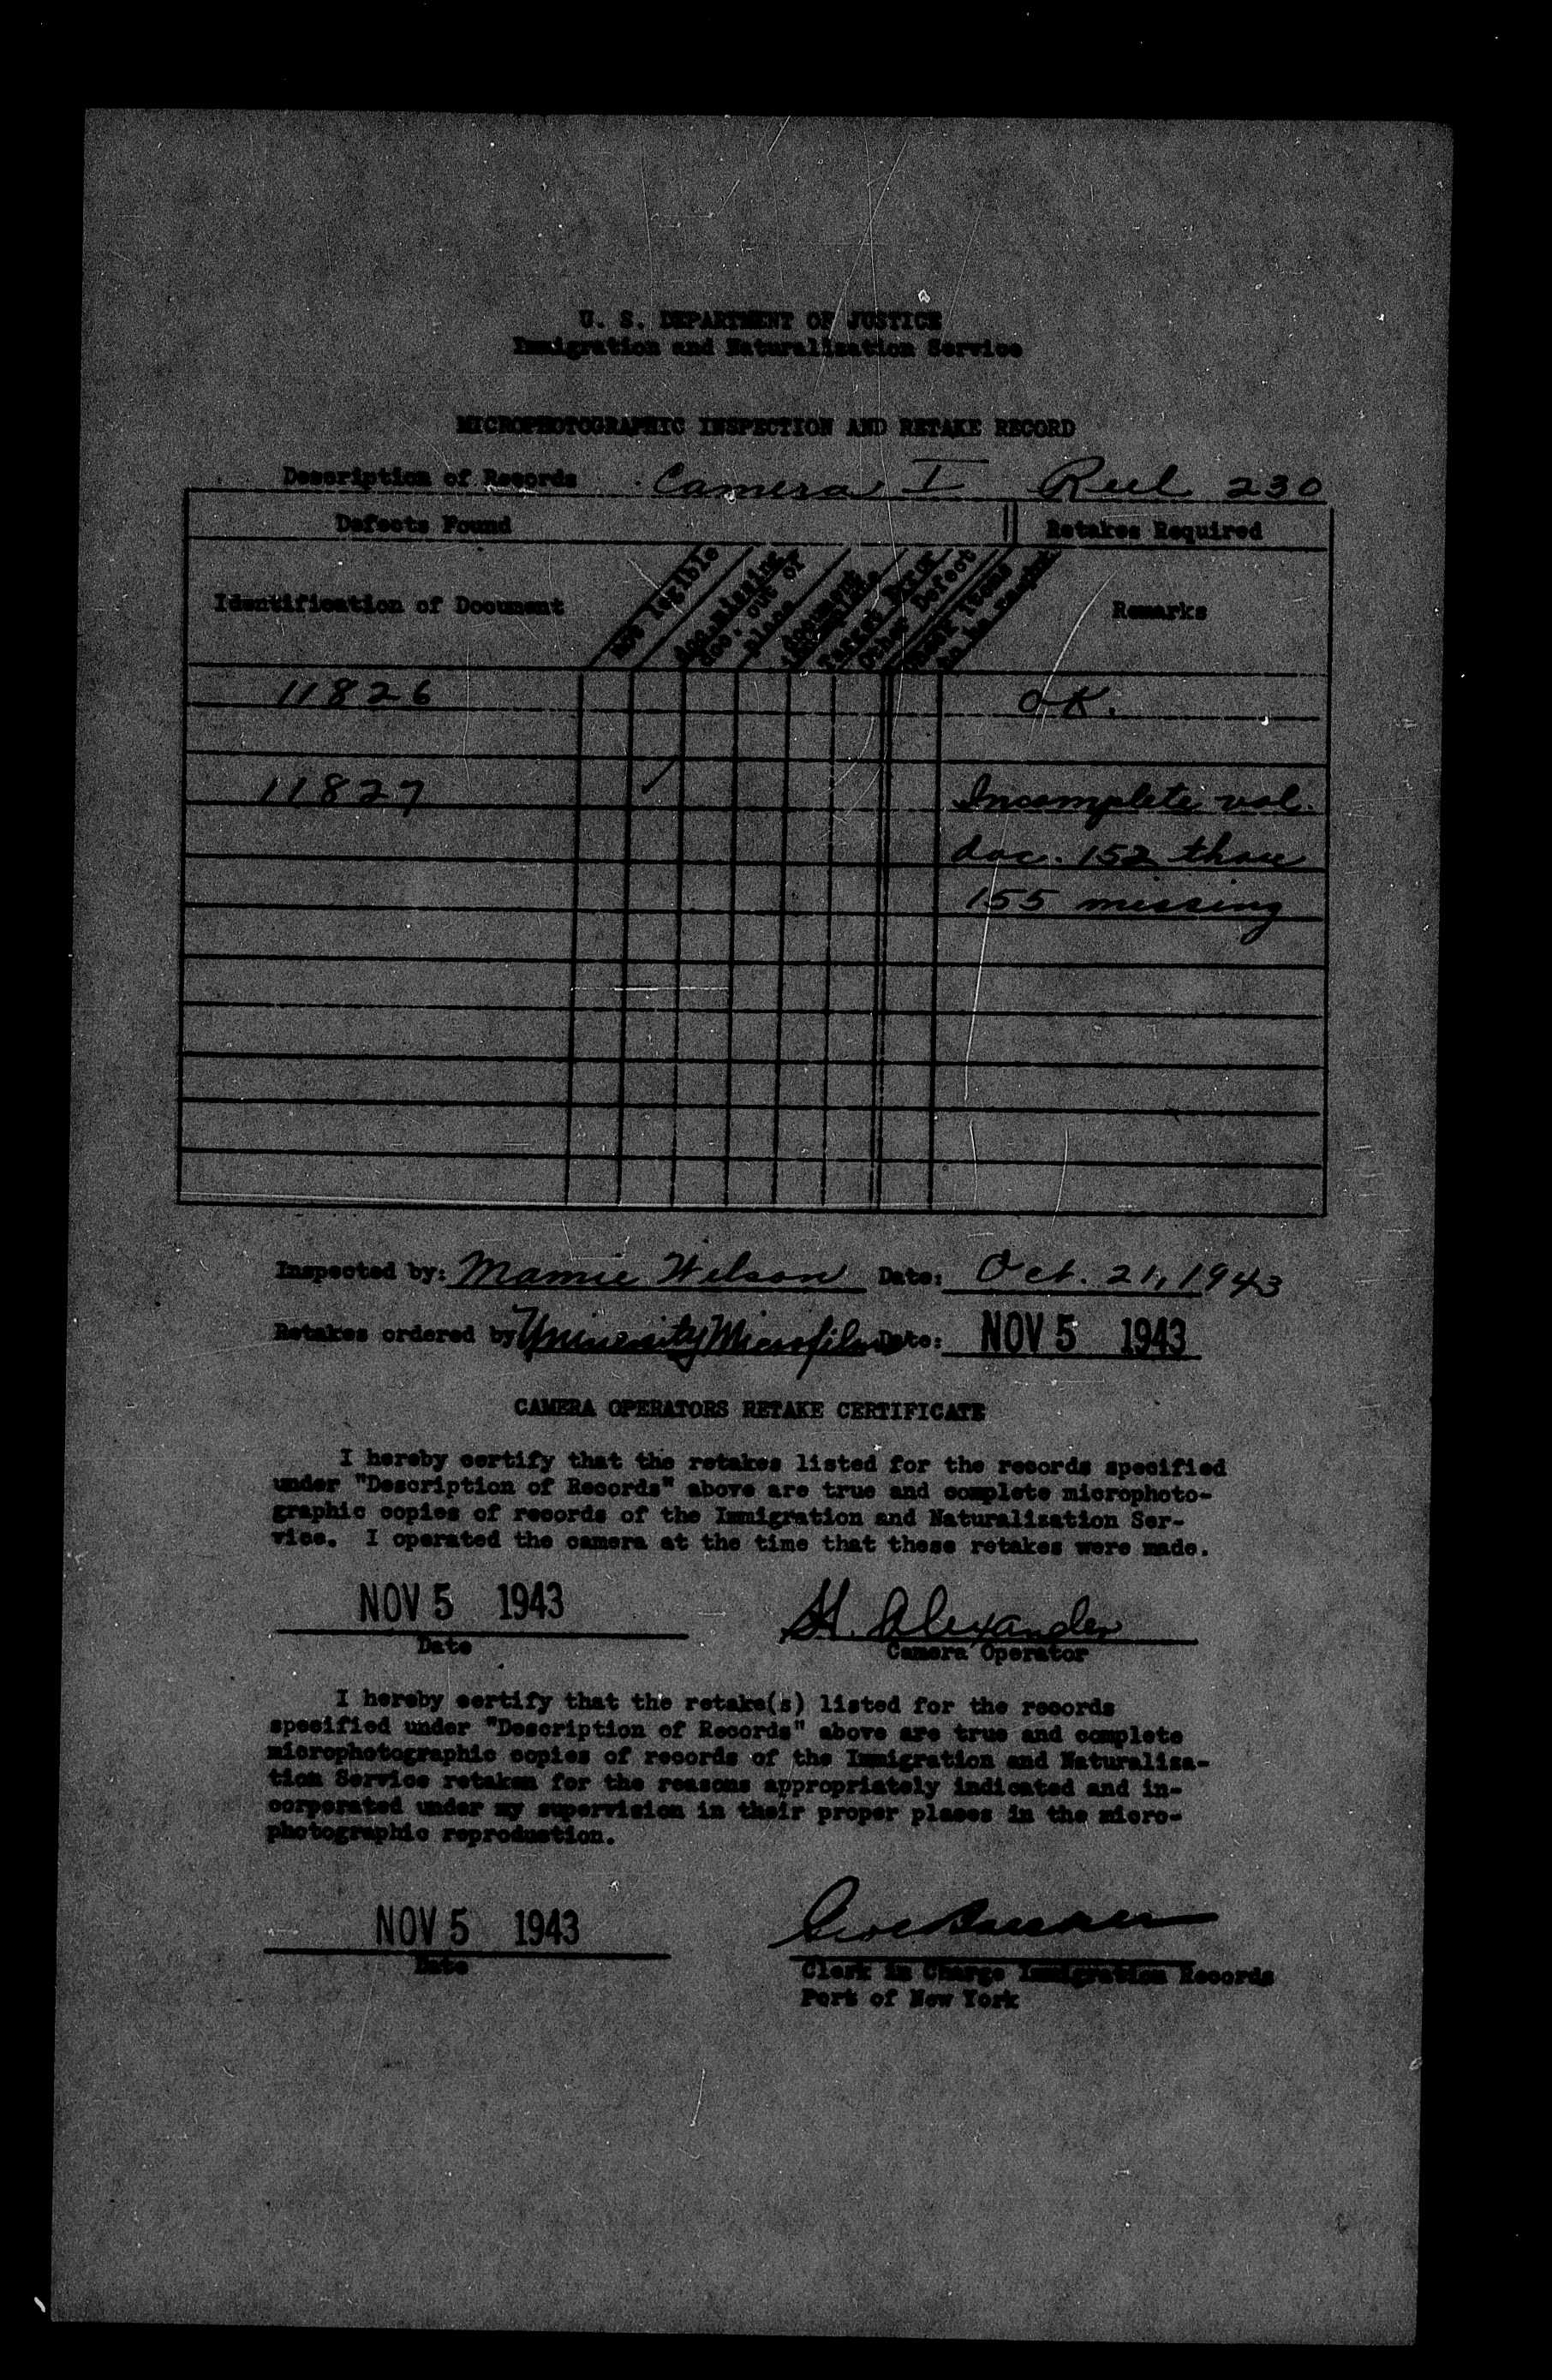 U. S. DEPARTMENT OF JUSTICE
Immigration and Naturalization Service
MICROPHOTOGRAPHIC INSPECTION AND RETAKE RECORD
Description of Records Camera I Reel 230
Defects Found Retakes Required
Identification of Document
Not legible
Doc. missing
doc. out of
place
document
incomplete
Target Error
Other Defect
items
to be
Remarks
11826 O.K.
11827 / Incomplete vol.
doc. 152 thru
155 missing
Inspected by: Mamie Wilson Date: Oct. 21, 1943
Retakes ordered by University Microfilms Date: NOV 5 1943
CAMERA OPERATORS RETAKE CERTIFICATE
I hereby certify that the retakes listed for the records specified
under "Description of Records" above are true and complete microphoto-
graphic copies of records of the Immigration and Naturalization Ser-
vice. I operated the camera at the time that these retakes were made.
NOV 5 1943 H. Alexander
Date Camera Operator
I hereby certify that the retake(s) listed for the records
specified under "Description of Records" above are true and complete
microphotographic copies of records of the Immigration and Naturaliza-
tion Service retaken for the reasons appropriately indicated and in-
corporated under my supervision in their proper places in the micro-
photographic reproduction.
NOV 5 1943
Date Clerk in Charge Immigration Records
Port of New York